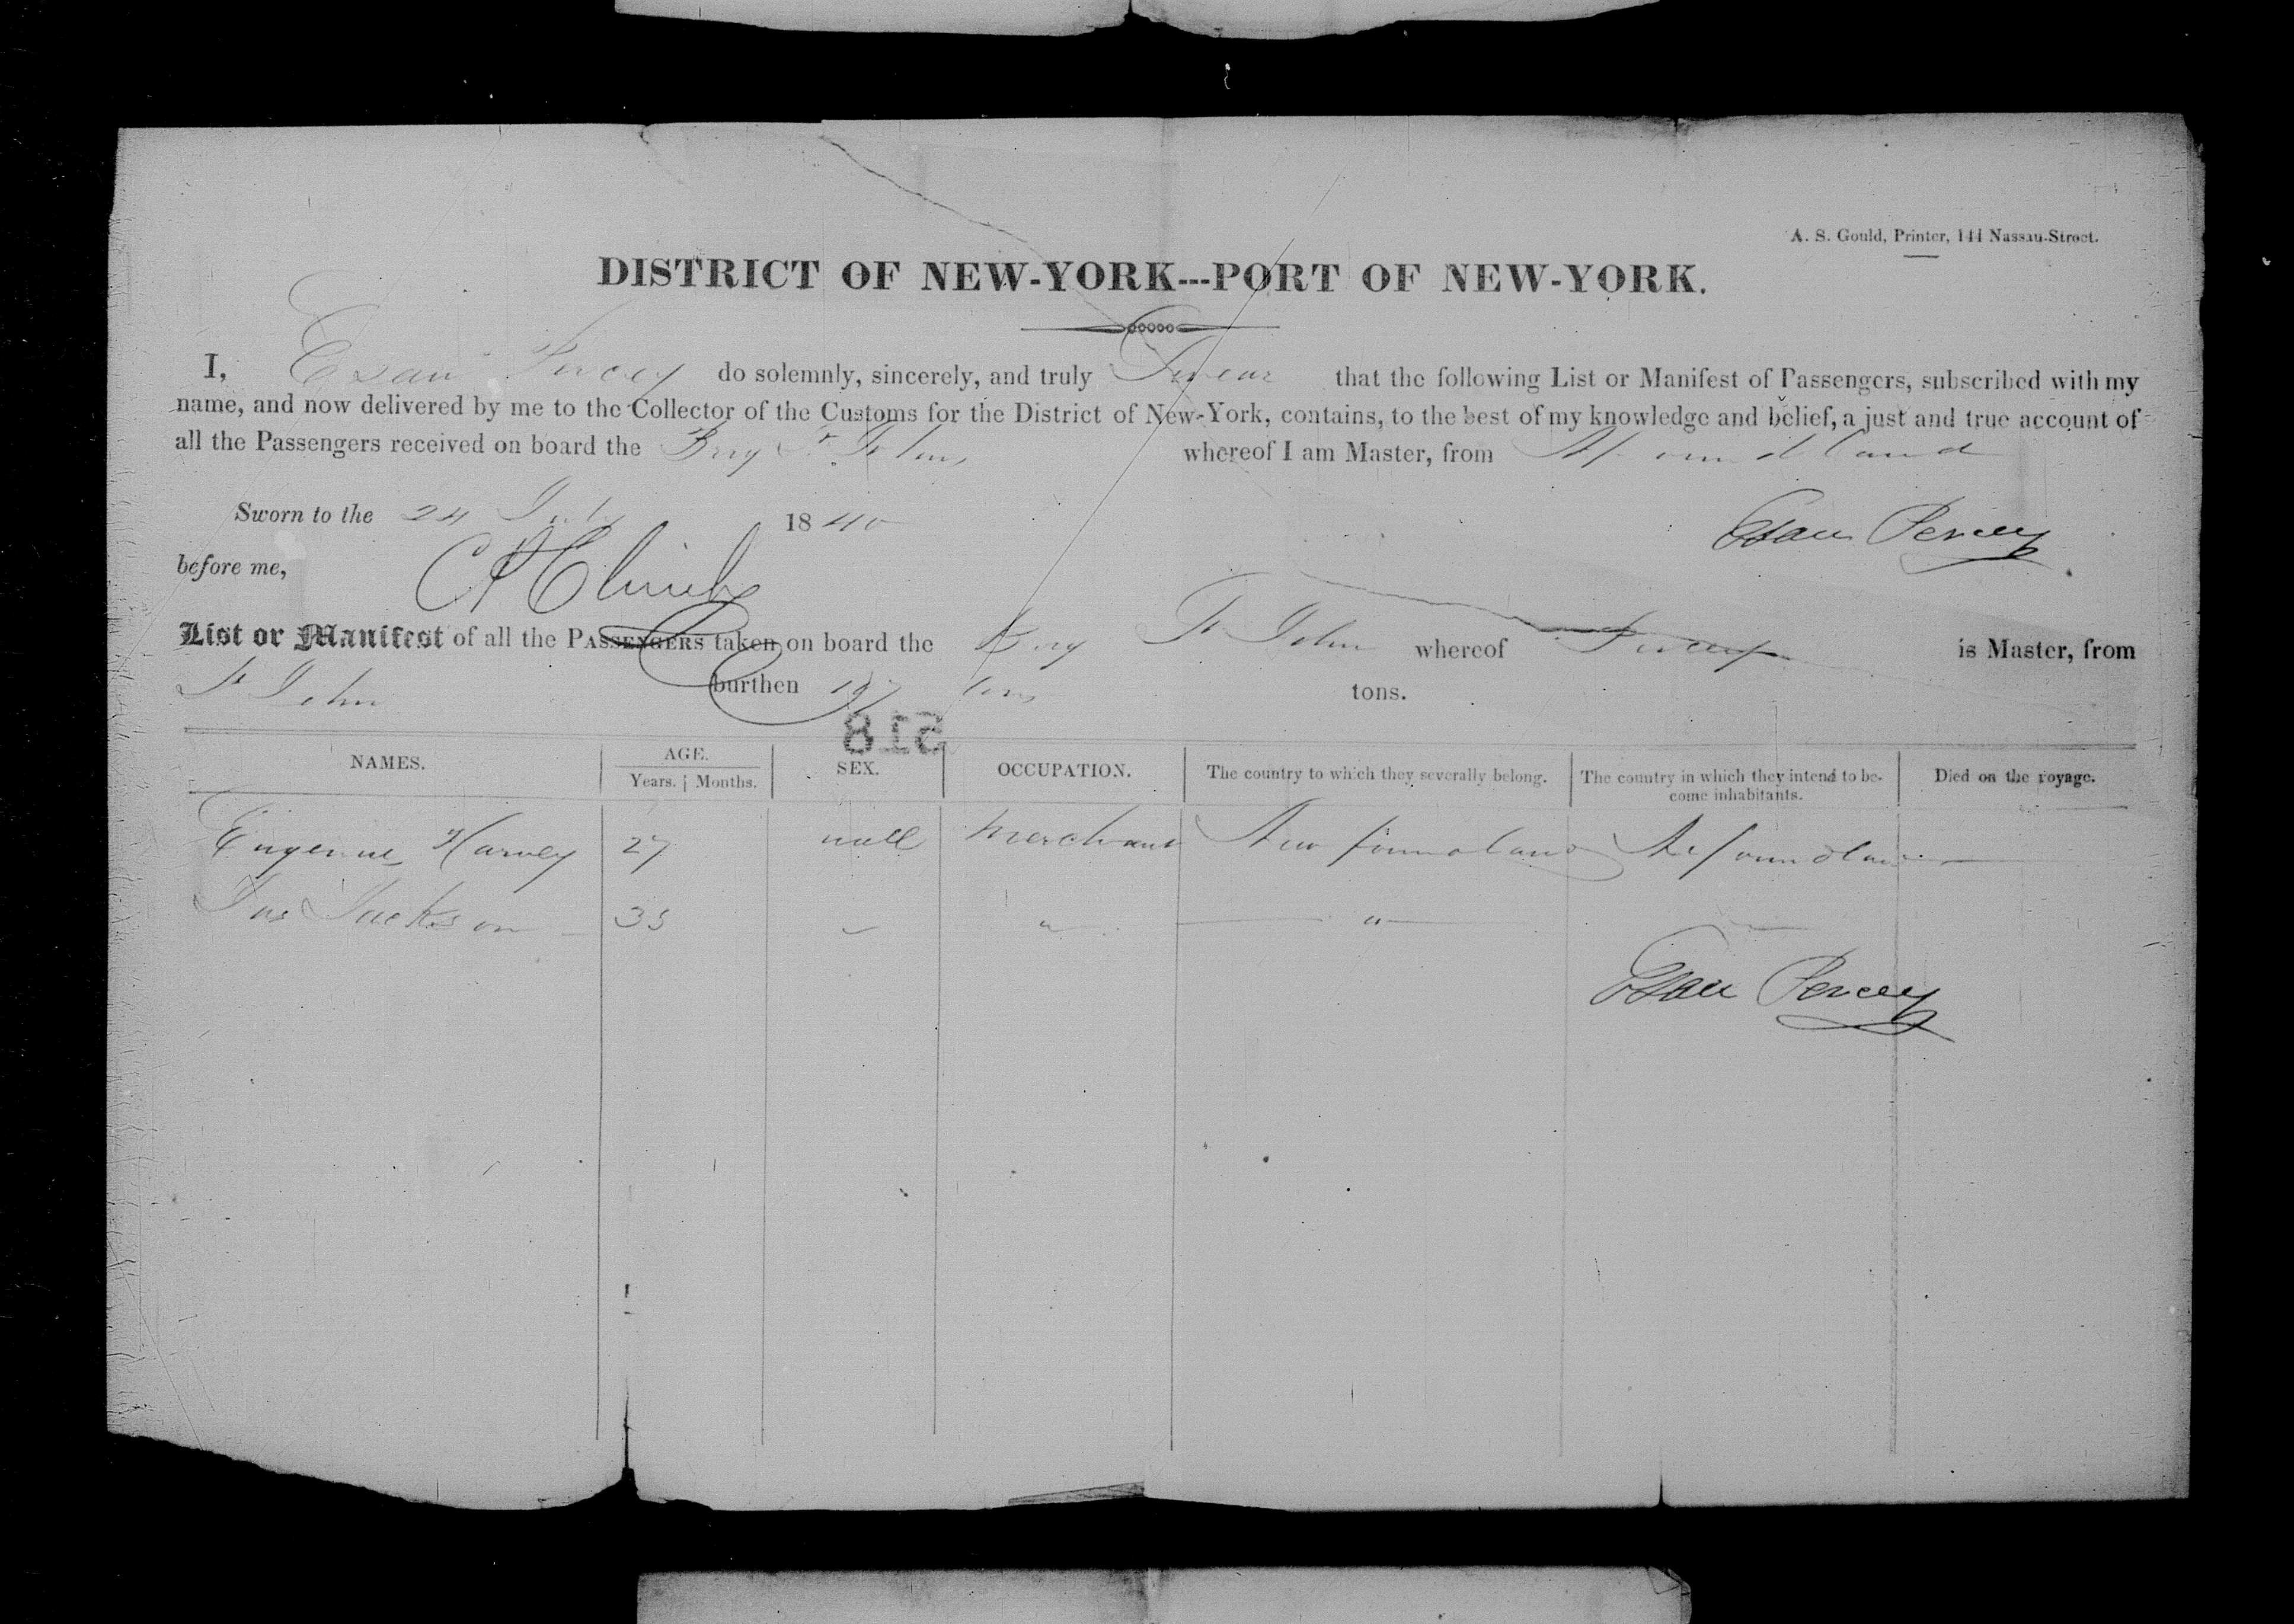 A. S. Gould, Printer, 144 Nassau-Street.
DISTRICT OF NEW-YORK---PORT OF NEW-YORK.
I, Esau Percey do solemnly, sincerely, and truly Swear that the following List or Manifest of Passengers, subscribed with my
name, and now delivered by me to the Collector of the Customs for the District of New-York, contains, to the best of my knowledge and belief, a just and true account of
all the Passengers received on board the Brig St Johns whereof I am Master, from Nfoundland
Sworn to the 24 July 1840
Esau Percey
before me,
List or Manifest of all the PASSENGERS taken on board the Brig St John whereof Percey is Master, from
St John burthen tons tons.
518
NAMES. AGE. Years. Months. SEX. OCCUPATION. The country to which they severally belong. The country in which they intend to become inhabitants. Died on the voyage.
Eugenius Harvey 27 male Merchant New foundland Nefoundland
Jas Jackson 35 " " "
Esau Percey